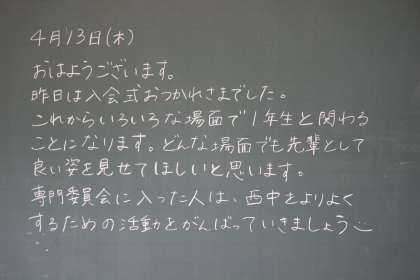 4月13日(木)
おはようございます。
昨日は入会式おつかれさまでした。
これからいろいろな場面で1年生と関わる
ことになります。どんな場面でも先輩として
良い姿を見せてほしいと思います。
専門委員会に入った人は、西中をよりよく
するための活動をがんばっていきましょう